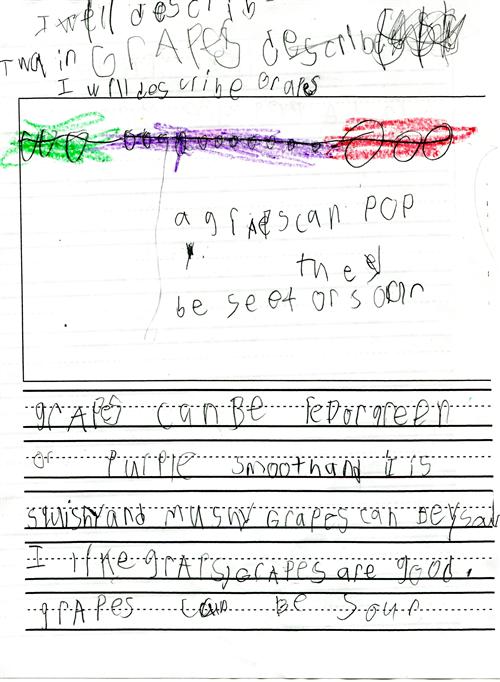 I well describ
Twa in GrAPES describ
I will describe Grapes
a grapes can POP
they
be seet or sour
grAPES can Be redorgreen
or PurPle smoothand it is
squishyand Mushy GraPes can Be ysour
I like grAPs,GrAPES are good.
grAPes can be Sour